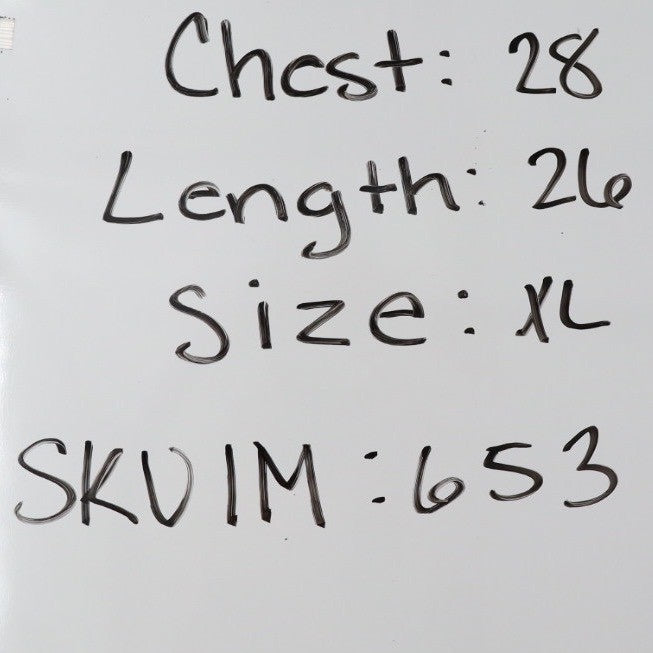 Chest: 28
Length: 26
Size: XL
SKUIM: 653